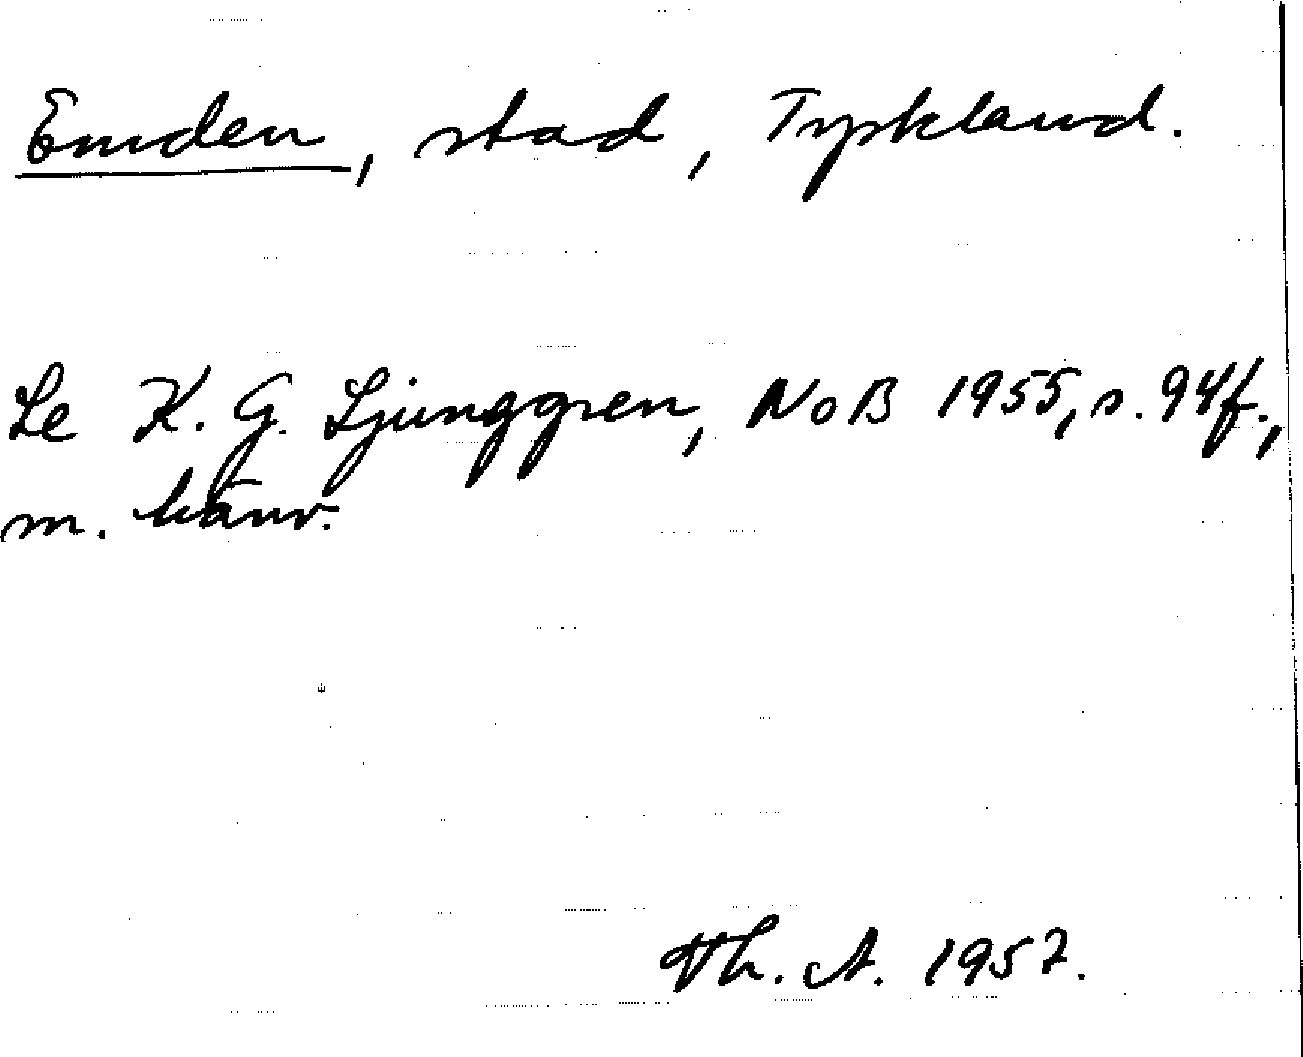 Emden, stad, Tyskland.
Se K. G. Ljunggren, NoB 1955, s. 94f.,
m. hänv.
Th. A. 1957.